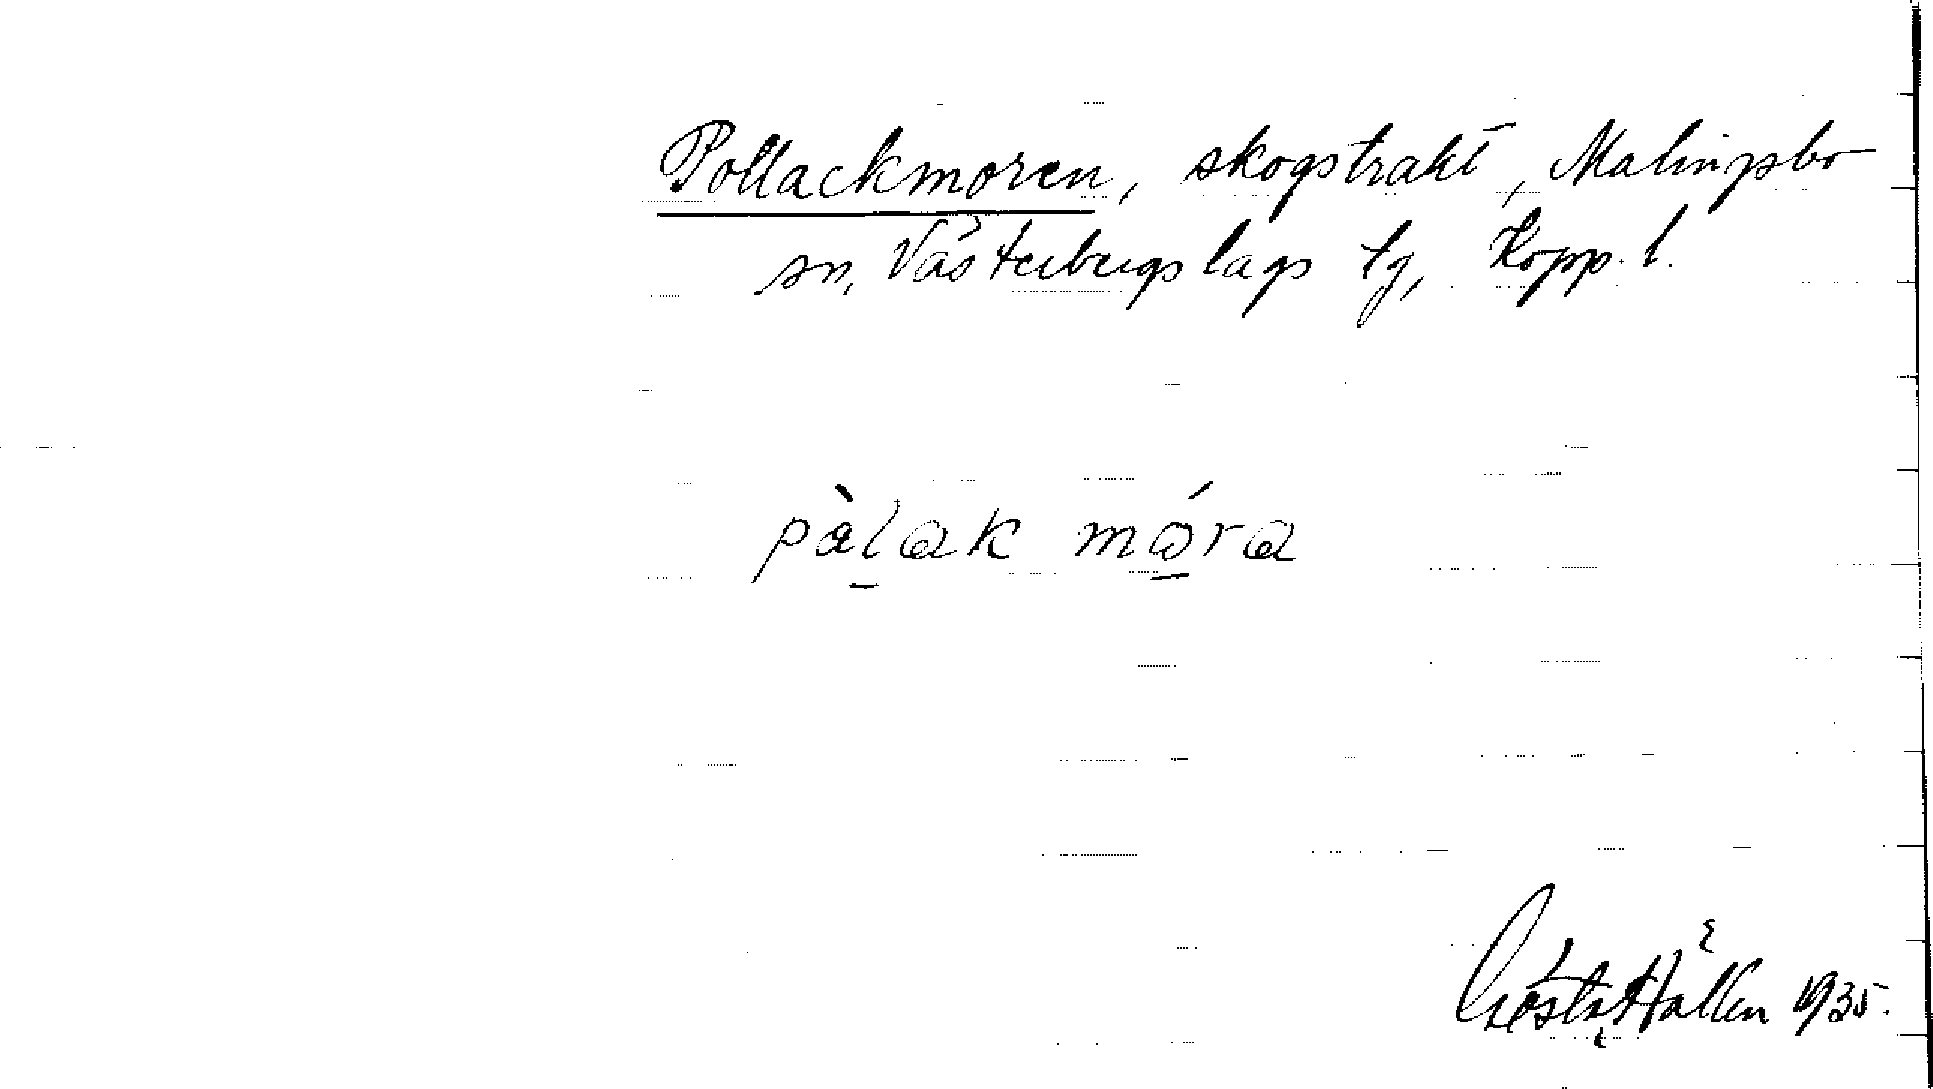 Pollackmoren, skogstrakt, Malingsbo
sn, Västerbergslags tg, Kopp. l.
pàlak móra
Gösta Hallén 1935.